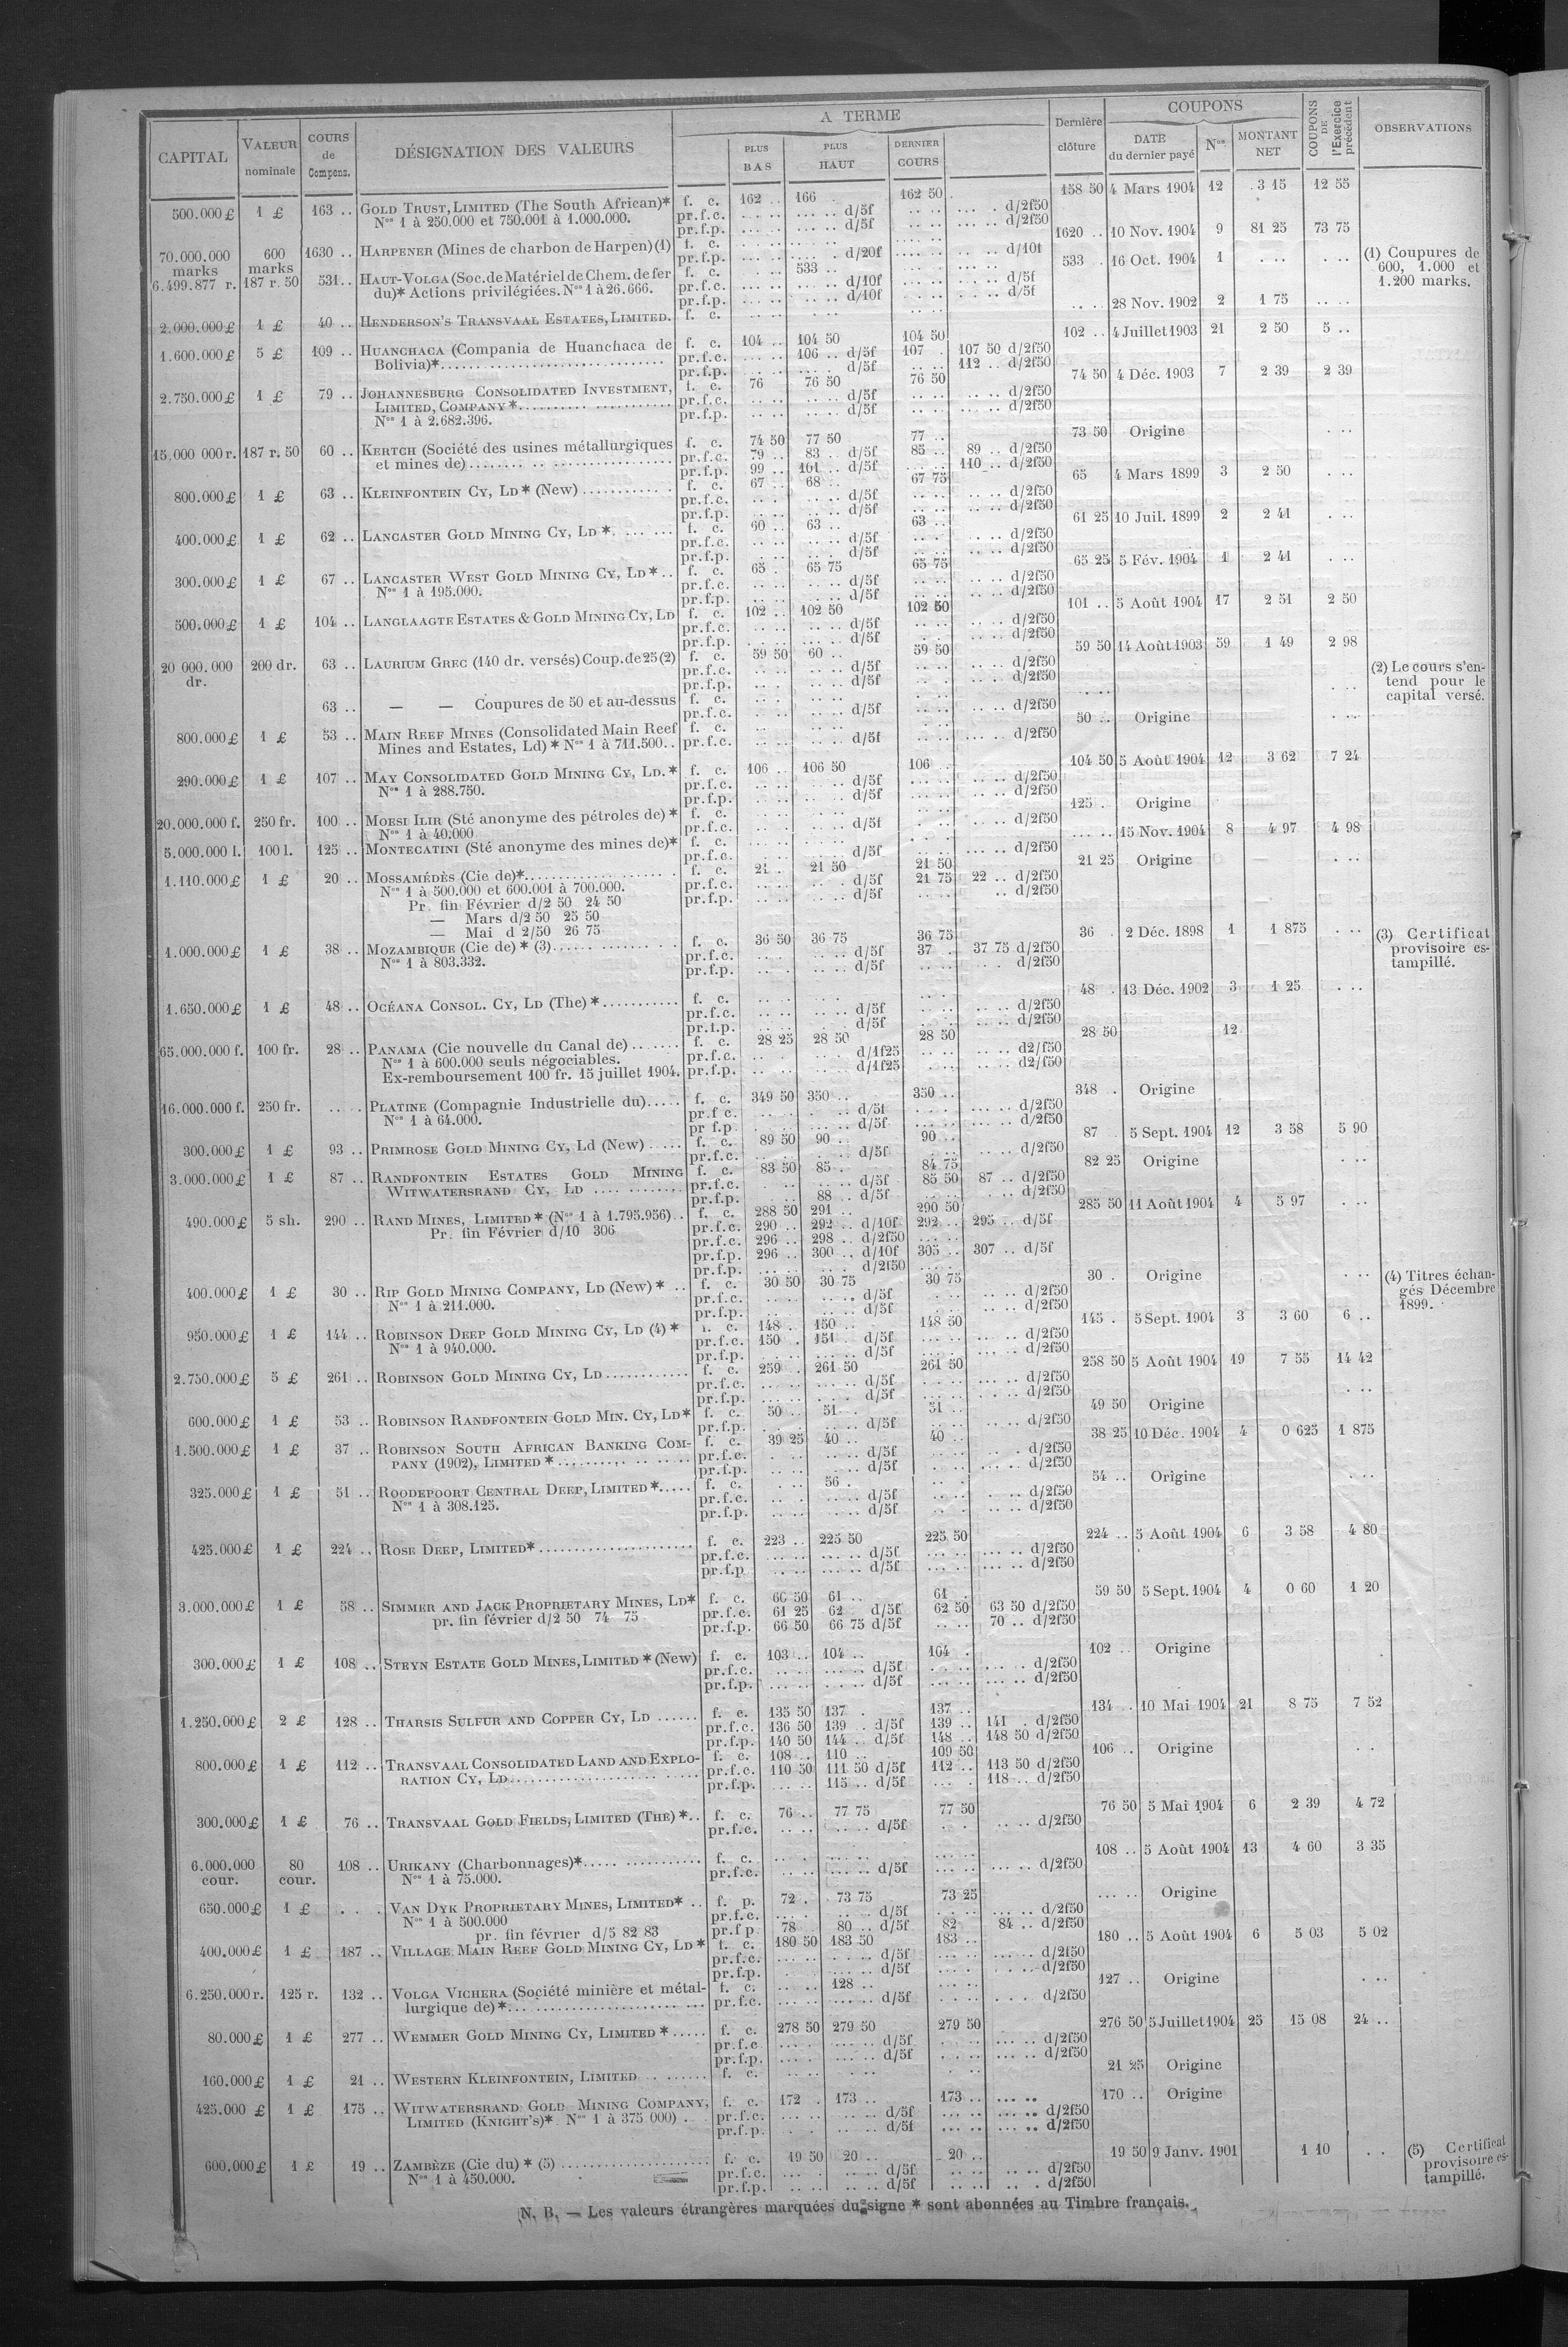 CAPITAL | VALEUR nominale | COURS de Compens. | DÉSIGNATION DES VALEURS | A TERME | PLUS BAS | PLUS HAUT | DERNIER COURS | Dernière clôture | COUPONS | DATE du dernier payé | Nos | MONTANT NET | COUPONS DE l'Exercice précédent | OBSERVATIONS
500.000 £ 1 £ 163 .. GOLD TRUST, LIMITED (The South African)* f. c. 162 .. 166 . 162 50 158 50 4 Mars 1904 12 3 15 12 55
Nos 1 à 250.000 et 750.001 à 1.000.000. pr.f.c. d/5f d/2f50
pr.f.p. d/5f d/2f50
70.000.000 marks 600 marks 1630 .. HARPENER (Mines de charbon de Harpen) (1) f. c. 1620 .. 10 Nov. 1904 9 81 25 73 75
pr.f.p. d/20f d/10f
(1) Coupures de 600, 1.000 et 1.200 marks.
6.499.877 r. 187 r. 50 531 .. HAUT-VOLGA (Soc. de Matériel de Chem. de fer f. c. 533 .. 533 . 16 Oct. 1904 1
du)* Actions privilégiées. Nos 1 à 26.666. pr.f.c. d/10f d/5f
pr.f.p. d/10f d/5f
2.000.000 £ 1 £ 40 .. HENDERSON'S TRANSVAAL ESTATES, LIMITED. f. c. 28 Nov. 1902 2 1 75
1.600.000 £ 5 £ 109 .. HUANCHACA (Compania de Huanchaca de f. c. 104 .. 104 50 104 50 102 .. 4 Juillet 1903 21 2 50 5 ..
Bolivia)* pr.f.c. 106 .. d/5f 107 . 107 50 d/2f50
pr.f.p. d/5f 112 .. d/2f50
2.750.000 £ 1 £ 79 .. JOHANNESBURG CONSOLIDATED INVESTMENT, f. c. 76 76 50 76 50 74 50 4 Déc. 1903 7 2 39 2 39
LIMITED, COMPANY* pr.f.c. d/5f d/2f50
Nos 1 à 2.682.396. pr.f.p. d/5f d/2f50
15.000 000 r. 187 r. 50 60 .. KERTCH (Société des usines métallurgiques f. c. 74 50 77 50 77 .. 73 50 Origine
et mines de) pr.f.c. 79 .. 83 . d/5f 85 .. 89 .. d/2f50
pr.f.p. 99 .. 101 .. d/5f 110 .. d/2f50
800.000 £ 1 £ 63 .. KLEINFONTEIN CY, LD* (New) f. c. 67 .. 68 .. 67 75 65 4 Mars 1899 3 2 50
pr.f.c. d/5f d/2f50
pr.f.p. d/5f d/2f50
400.000 £ 1 £ 62 .. LANCASTER GOLD MINING CY, LD* f. c. 60 .. 63 .. 63 .. 61 25 10 Juil. 1899 2 2 41
pr.f.c. d/5f d/2f50
pr.f.p. d/5f d/2f50
300.000 £ 1 £ 67 .. LANCASTER WEST GOLD MINING CY, LD* f. c. 65 . 65 75 65 75 65 25 5 Fév. 1904 1 2 41
Nos 1 à 195.000. pr.f.c. d/5f d/2f50
pr.f.p. d/5f d/2f50
500.000 £ 1 £ 104 .. LANGLAAGTE ESTATES & GOLD MINING CY, LD f. c. 102 .. 102 50 102 50 101 .. 5 Août 1904 17 2 51 2 50
pr.f.c. d/5f d/2f50
pr.f.p. d/5f d/2f50
20 000.000 dr. 200 dr. 63 .. LAURIUM GREC (140 dr. versés) Coup. de 25 (2) f. c. 59 50 60 .. 59 50 59 50 14 Août 1903 59 1 49 2 98
pr.f.c. d/5f d/2f50
pr.f.p. d/5f d/2f50
(2) Le cours s'entend pour le capital versé.
63 .. — — Coupures de 50 et au-dessus f. c.
pr.f.c. d/5f d/2f50
800.000 £ 1 £ 53 .. MAIN REEF MINES (Consolidated Main Reef f. c. 50 .. Origine
Mines and Estates, Ld)* Nos 1 à 711.500 pr.f.c. d/5f d/2f50
290.000 £ 1 £ 107 .. MAY CONSOLIDATED GOLD MINING CY, LD.* f. c. 106 .. 106 50 106 .. 104 50 5 Août 1904 12 3 62 7 24
Nos 1 à 288.750. pr.f.c. d/5f d/2f50
pr.f.p. d/5f d/2f50
20.000.000 f. 250 fr. 100 .. MOESI ILIR (Sté anonyme des pétroles de)* f. c. 125 . Origine
Nos 1 à 40.000 pr.f.c. d/5f d/2f50
5.000.000 l. 100 l. 125 .. MONTECATINI (Sté anonyme des mines de)* f. c. 15 Nov. 1904 8 4 97 4 98
pr.f.c. d/5f d/2f50
1.110.000 £ 1 £ 20 .. MOSSAMÉDÈS (Cie de)* f. c. 21 . 21 50 21 50 21 25 Origine
Nos 1 à 500.000 et 600.001 à 700.000. pr.f.c. d/5f 21 75 22 .. d/2f50
Pr. fin Février d/2 50 24 50 pr.f.p. d/5f d/2f50
— Mars d/2 50 25 50
— Mai d 2/50 26 75
1.000.000 £ 1 £ 38 .. MOZAMBIQUE (Cie de)* (3) f. c. 36 50 36 75 36 75 36 . 2 Déc. 1898 1 1 875
Nos 1 à 803.332. pr.f.c. d/5f 37 . 37 75 d/2f50
pr.f.p. d/5f d/2f50
(3) Certificat provisoire estampillé.
1.650.000 £ 1 £ 48 .. OCÉANA CONSOL. CY, LD (The)* f. c. 48 . 13 Déc. 1902 3 1 25
pr.f.c. d/5f d/2f50
pr.f.p. d/5f d/2f50
65.000.000 f. 100 fr. 28 .. PANAMA (Cie nouvelle du Canal de) f. c. 28 25 28 50 28 50 28 50 12
Nos 1 à 600.000 seuls négociables. pr.f.c. d/1f25 d2/f50
Ex-remboursement 100 fr. 15 juillet 1904. pr.f.p. d/1f25 d2/f50
16.000.000 f. 250 fr. PLATINE (Compagnie Industrielle du) f. c. 349 50 350 .. 350 .. 348 . Origine
Nos 1 à 64.000. pr.f c. d/5f d/2f50
pr f.p. d/5f d/2f50
300.000 £ 1 £ 93 .. PRIMROSE GOLD MINING CY, Ld (New) f. c. 89 50 90 .. 90 .. 87 . 5 Sept. 1904 12 3 58 5 90
pr.f.c. d/5f d/2f50
3.000.000 £ 1 £ 87 .. RANDFONTEIN ESTATES GOLD MINING f. c. 83 50 85 . 84 75 82 25 Origine
WITWATERSRAND CY, LD pr.f.c. d/5f 85 50 87 .. d/2f50
pr.f.p. 88 .. d/5f d/2f50
490.000 £ 5 sh. 290 .. RAND MINES, LIMITED* (Nos 1 à 1.795.956) f. c. 288 50 291 .. 290 50 285 50 11 Août 1904 4 5 97
Pr. fin Février d/10 306 pr.f.c. 290 .. 292 .. d/10f 292 .. 295 .. d/5f
pr.f.c. 296 .. 298 .. d/2f50
pr.f.p. 296 .. 300 .. d/10f 305 .. 307 .. d/5f
pr.f.p. d/2f50
400.000 £ 1 £ 30 .. RIP GOLD MINING COMPANY, LD (New)* f. c. 30 50 30 75 30 75 30 . Origine
Nos 1 à 211.000. pr.f.c. d/5f d/2f50
pr.f.p. d/5f d/2f50
(4) Titres échangés Décembre 1899.
950.000 £ 1 £ 144 .. ROBINSON DEEP GOLD MINING CY, LD (4)* f. c. 148 . 150 .. 148 50 145 . 5 Sept. 1904 3 3 60 6 ..
Nos 1 à 940.000. pr.f.c. 150 . 151 . d/5f d/2f50
pr.f.p. d/5f d/2f50
2.750.000 £ 5 £ 261 .. ROBINSON GOLD MINING CY, LD f. c. 259 . 261 50 261 50 258 50 5 Août 1904 19 7 55 14 42
pr.f.c. d/5f d/2f50
pr.f.p. d/5f d/2f50
600.000 £ 1 £ 53 .. ROBINSON RANDFONTEIN GOLD MIN. CY, LD* f. c. 50 .. 51 . 51 .. 49 50 Origine
pr.f.p. d/5f d/2f50
1.500.000 £ 1 £ 37 .. ROBINSON SOUTH AFRICAN BANKING COM- f. c. 39 25 40 .. 40 .. 38 25 10 Déc. 1904 4 0 625 1 875
PANY (1902), LIMITED* pr.f.c. d/5f d/2f50
pr.f.p. d/5f d/2f50
325.000 £ 1 £ 51 .. ROODEPOORT CENTRAL DEEP, LIMITED* f. c. 56 . 54 .. Origine
Nos 1 à 308.125. pr.f.c. d/5f d/2f50
pr.f.p. d/5f d/2f50
425.000 £ 1 £ 224 .. ROSE DEEP, LIMITED* f. c. 223 .. 225 50 225 50 224 .. 5 Août 1904 6 3 58 4 80
pr.f.c. d/5f d/2f50
pr.f.p d/5f d/2f50
3.000.000 £ 1 £ 58 .. SIMMER AND JACK PROPRIETARY MINES, LD* f. c. 60 50 61 .. 61 . 59 50 5 Sept. 1904 4 0 60 1 20
pr. fin février d/2 50 74 75 pr.f.c. 61 25 62 . d/5f 62 50 63 50 d/2f50
pr.f.p. 66 50 66 75 d/5f 70 .. d/2f50
300.000 £ 1 £ 108 .. STEYN ESTATE GOLD MINES, LIMITED* (New) f. c. 103 .. 104 .. 104 . 102 .. Origine
pr.f.c. d/5f d/2f50
pr.f.p. d/5f d/2f50
1.250.000 £ 2 £ 128 .. THARSIS SULFUR AND COPPER CY, LD f. c. 135 50 137 . 137 .. 134 . 10 Mai 1904 21 8 75 7 52
pr.f.c. 136 50 139 .. d/5f 139 .. 141 . d/2f50
pr.f.p. 140 50 144 .. d/5f 148 .. 148 50 d/2f50
800.000 £ 1 £ 112 .. TRANSVAAL CONSOLIDATED LAND AND EXPLO- f. c. 108 .. 110 .. 109 50 106 .. Origine
RATION CY, LD pr.f.c. 110 50 111 50 d/5f 112 .. 113 50 d/2f50
pr.f.p. 115 .. d/5f 118 .. d/2f50
300.000 £ 1 £ 76 .. TRANSVAAL GOLD FIELDS, LIMITED (THE)* f. c. 76 .. 77 75 77 50 76 50 5 Mai 1904 6 2 39 4 72
pr.f.c. d/5f d/2f50
6.000.000 cour. 80 cour. 108 .. URIKANY (Charbonnages)* f. c. 108 .. 5 Août 1904 13 4 60 3 35
Nos 1 à 75.000. pr.f.c. d/5f d/2f50
650.000 £ 1 £ VAN DYK PROPRIETARY MINES, LIMITED* f. p. 72 . 73 75 73 25 Origine
Nos 1 à 500.000 pr.f.c. d/5f d/2f50
pr. fin février d/5 82 83 pr.f p 78 80 .. d/5f 82 84 .. d/2f50
400.000 £ 1 £ 187 .. VILLAGE MAIN REEF GOLD MINING CY, LD* f. c. 180 50 183 50 183 .. 180 .. 5 Août 1904 6 5 03 5 02
pr.f.c. d/5f d/2f50
pr.f.p. d/5f d/2f50
6.250.000 r. 125 r. 132 .. VOLGA VICHERA (Société minière et métal- f. c. 128 .. 127 .. Origine
lurgique de)* pr.f.c. d/5f d/2f50
80.000 £ 1 £ 277 .. WEMMER GOLD MINING CY, LIMITED* f. c. 278 50 279 50 279 50 276 50 5 Juillet 1904 25 15 08 24 ..
pr.f.c d/5f d/2f50
pr.f.p. d/5f d/2f50
160.000 £ 1 £ 21 .. WESTERN KLEINFONTEIN, LIMITED f. c. 21 25 Origine
425.000 £ 1 £ 175 .. WITWATERSRAND GOLD MINING COMPANY, f. c. 172 . 173 .. 173 .. 170 .. Origine
LIMITED (KNIGHT'S)* Nos 1 à 375 000) pr.f.c. d/5f d/2f50
pr.f.p. d/5f d/2f50
600.000 £ 1 £ 19 .. ZAMBÈZE (Cie du)* (5) f. c. 19 50 20 .. 20 .. 19 50 9 Janv. 1901 1 10
Nos 1 à 450.000. pr.f.c. d/5f d/2f50
pr.f.p. d/5f d/2f50
(5) Certificat provisoire estampillé.
N. B. — Les valeurs étrangères marquées du signe * sont abonnées au Timbre français.